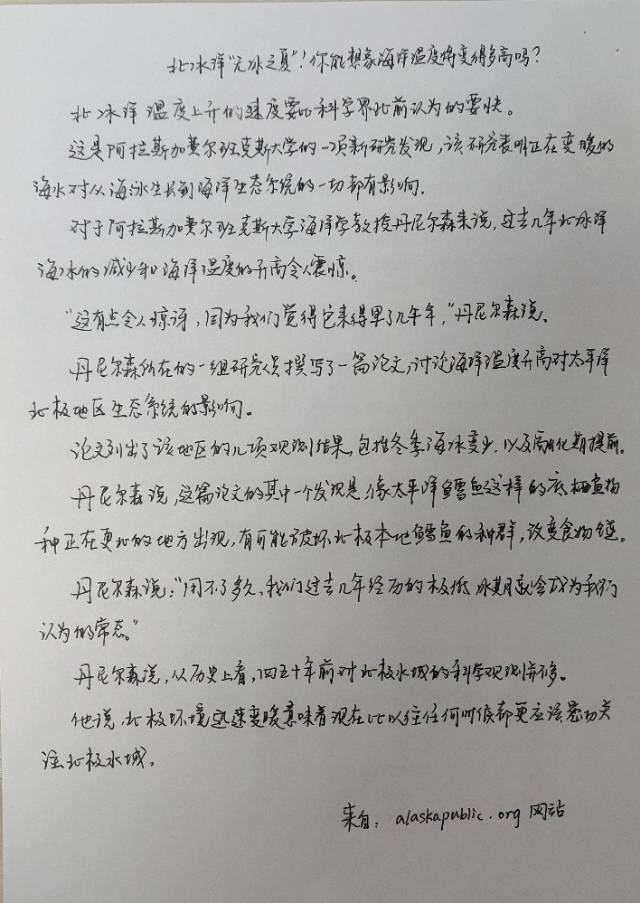 北冰洋“无冰之夏”！你能想象海洋温度将变得多高吗？
北冰洋温度上升的速度要比科学界此前认为的要快。
这是阿拉斯加费尔班克斯大学的一项新研究发现，该研究表明正在变暖的
海水对从海冰生长到海洋生态系统的一切都有影响。
对于阿拉斯加费尔班克斯大学海洋学教授丹尼尔森来说，过去几年北冰洋
海冰的减少和海洋温度的升高令人震惊。
“这有点令人惊讶，因为我们觉得它来得早了几十年，”丹尼尔森说。
丹尼尔森所在的一组研究人员撰写了一篇论文，讨论海洋温度升高对太平洋
北极地区生态系统的影响。
论文列出了该地区的几项观测结果，包括冬季海冰变少，以及融化期提前。
丹尼尔森说，这篇论文的其中一个发现是，像太平洋鳕鱼这样的底栖鱼物
种正在更北的地方出现，有可能破坏北极本地鳕鱼的种群，改变食物链。
丹尼尔森说：“用不了多久，我们过去几年经历的极低冰期就会成为我们
认为的常态。”
丹尼尔森说，从历史上看，四五十年前对北极水域的科学观测并不多。
他说，北极环境迅速变暖意味着现在比以往任何时候都更应该密切关
注北极水域。
来自：alaskapublic.org 网站